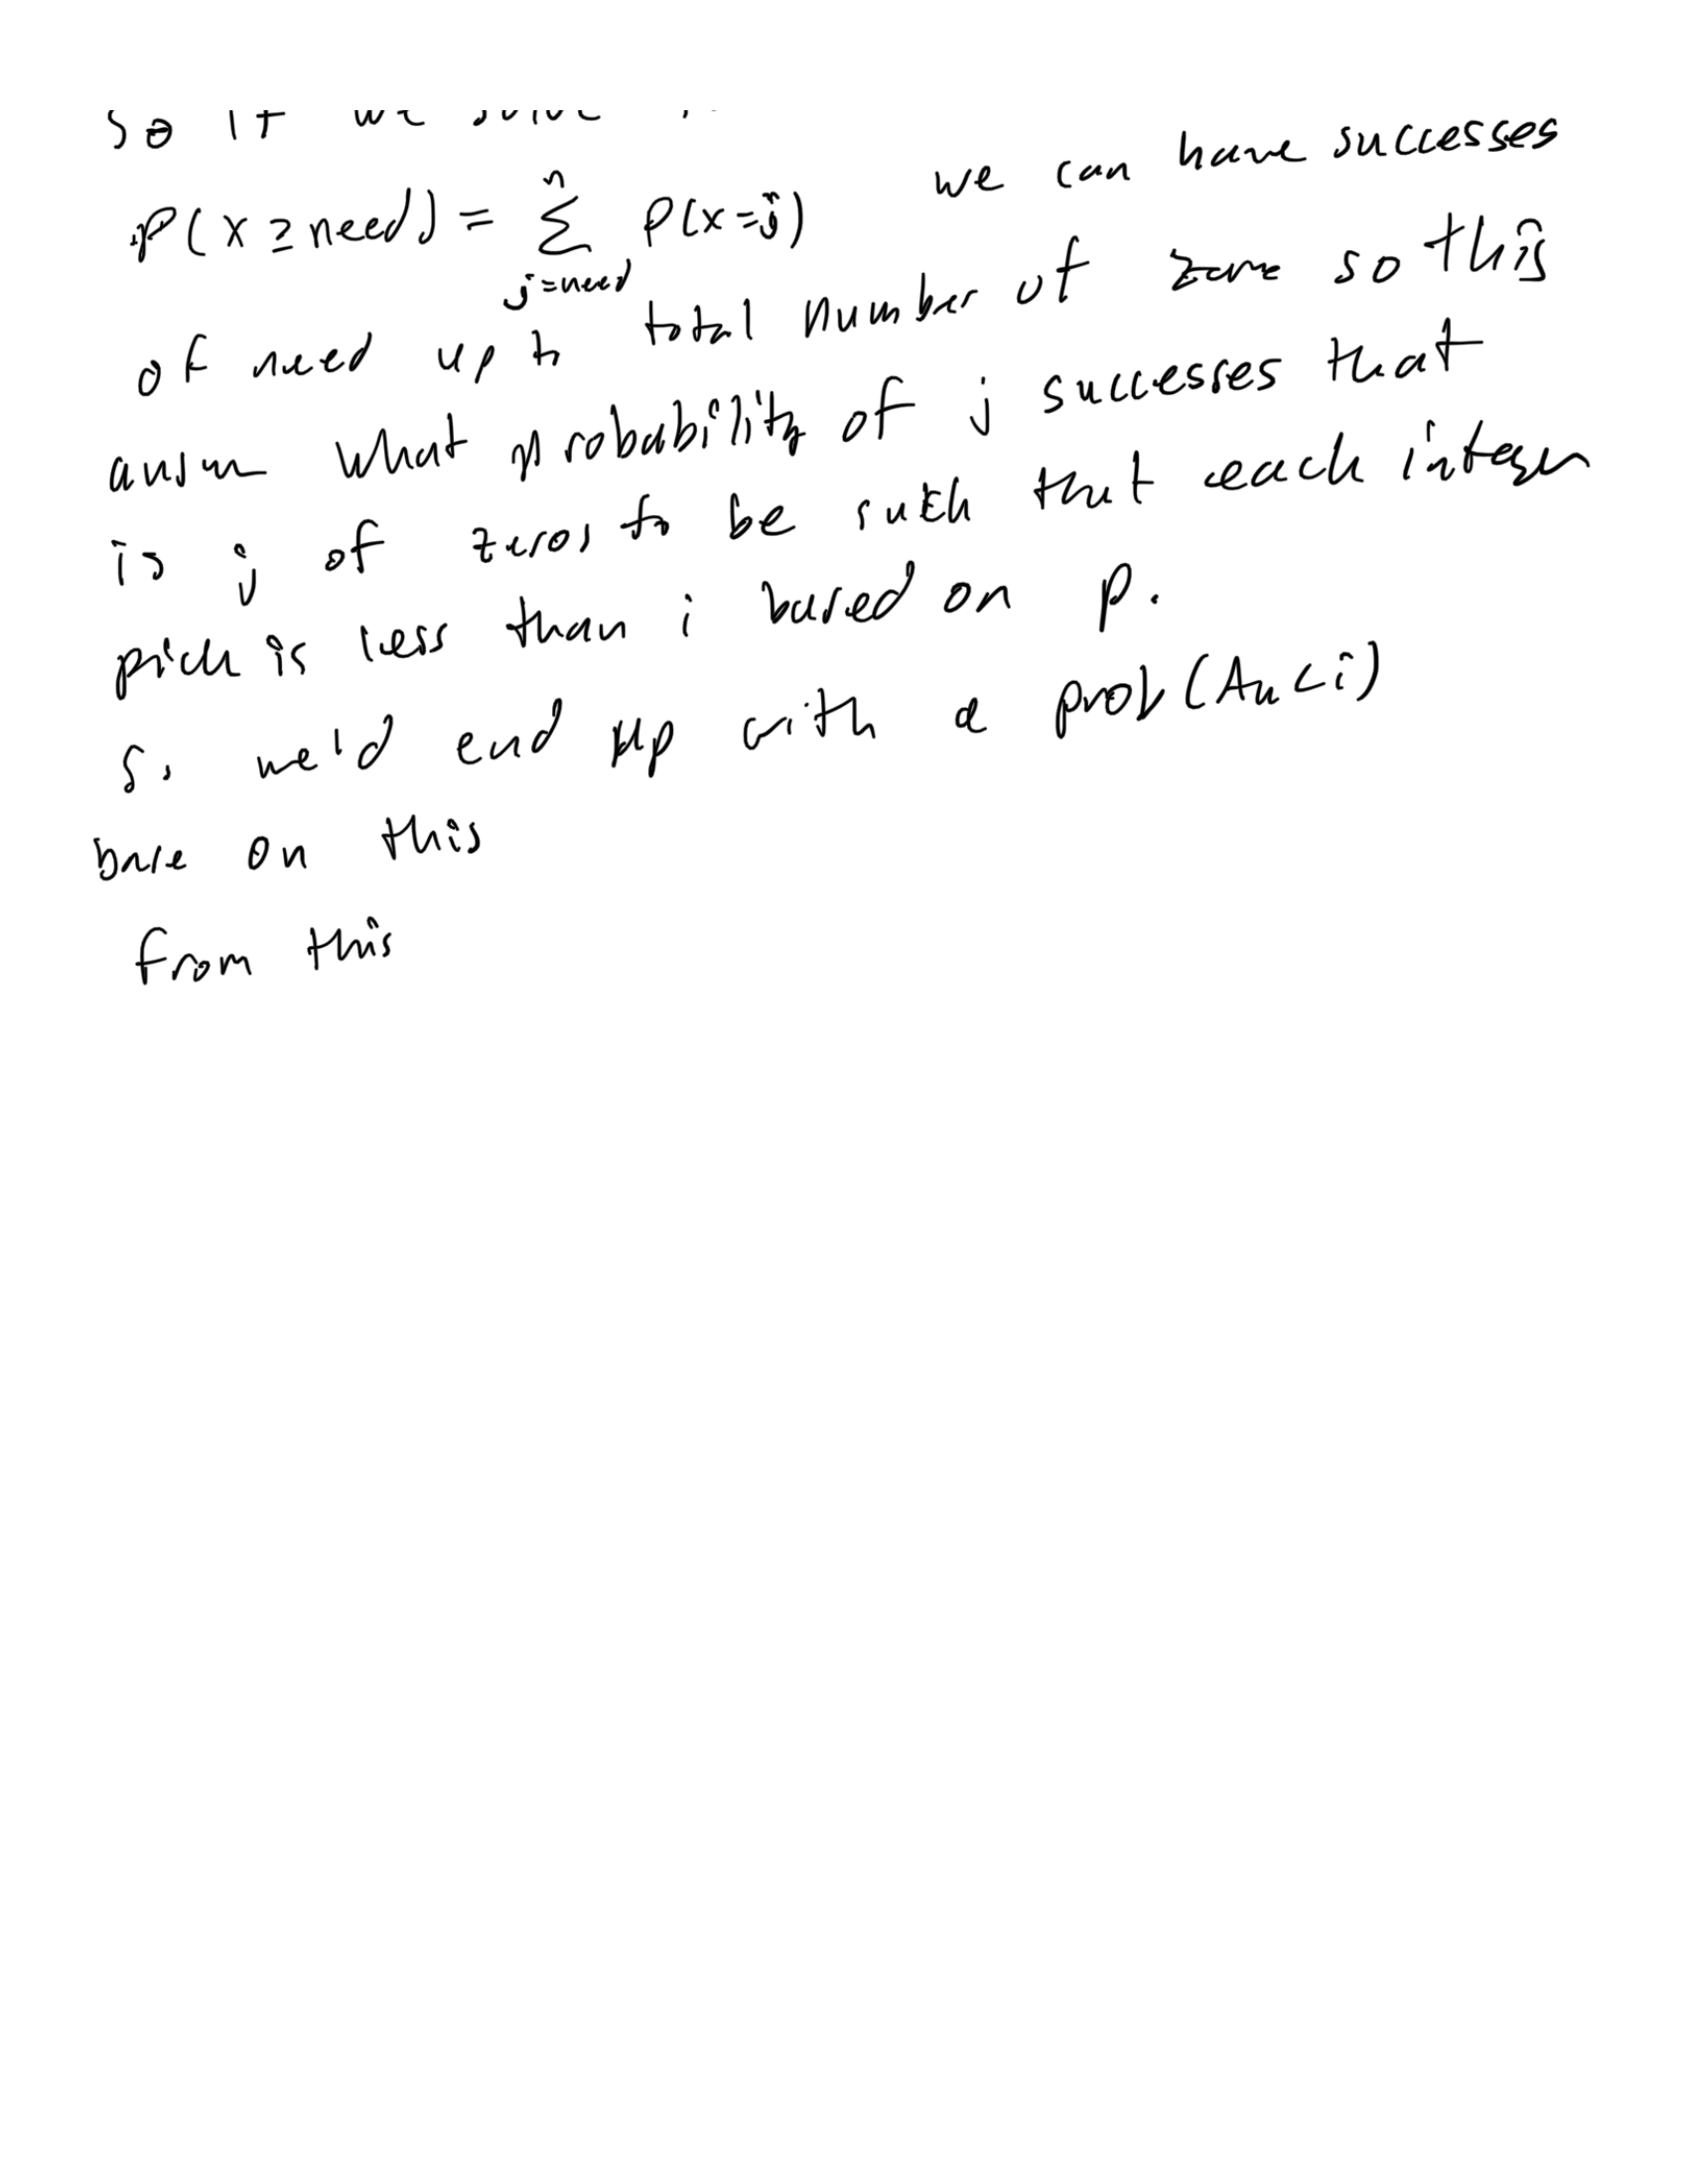 so if we solve
P(x ≥ need) = Σ P(x = j) we can have successes
n
j = need
of need up to total number of zeros so this
answer what probability of j successes that
is j of zeros to be such that each integer
pick is less than i based on p.
So we'd end up with a prob(An < i)
base on this
from this